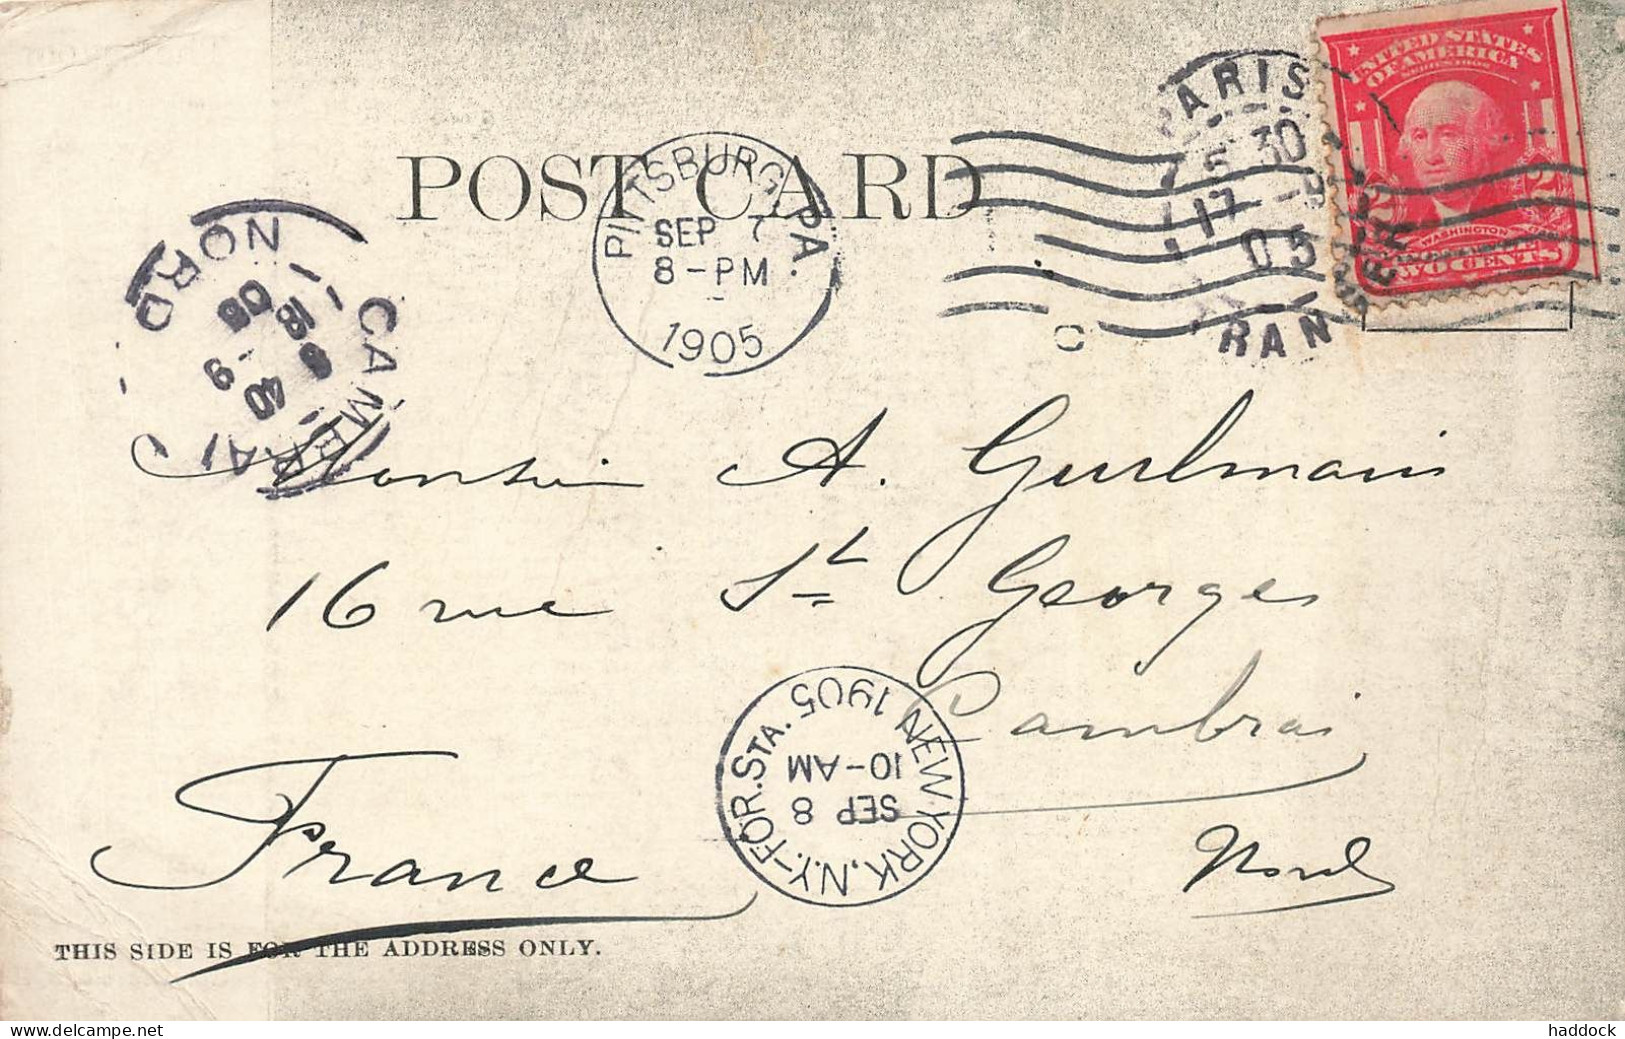 UNITED STATES
OF AMERICA
SERIES 1902
WASHINGTON
2 2
TWO CENTS
PARIS
5 30
17 - 9
05
POST CARD
PITTSBURG, PA.
SEP 7
8-PM
1905
CAMBRAI
NORD
18 - 9
05
Monsieur A.
16 rue St Georges
Cambrai
Nord
France
NEW YORK, N.Y.-FOR. STA.
SEP 8
10-AM
1905
THIS SIDE IS FOR THE ADDRESS ONLY.
haddock
www.delcampe.net